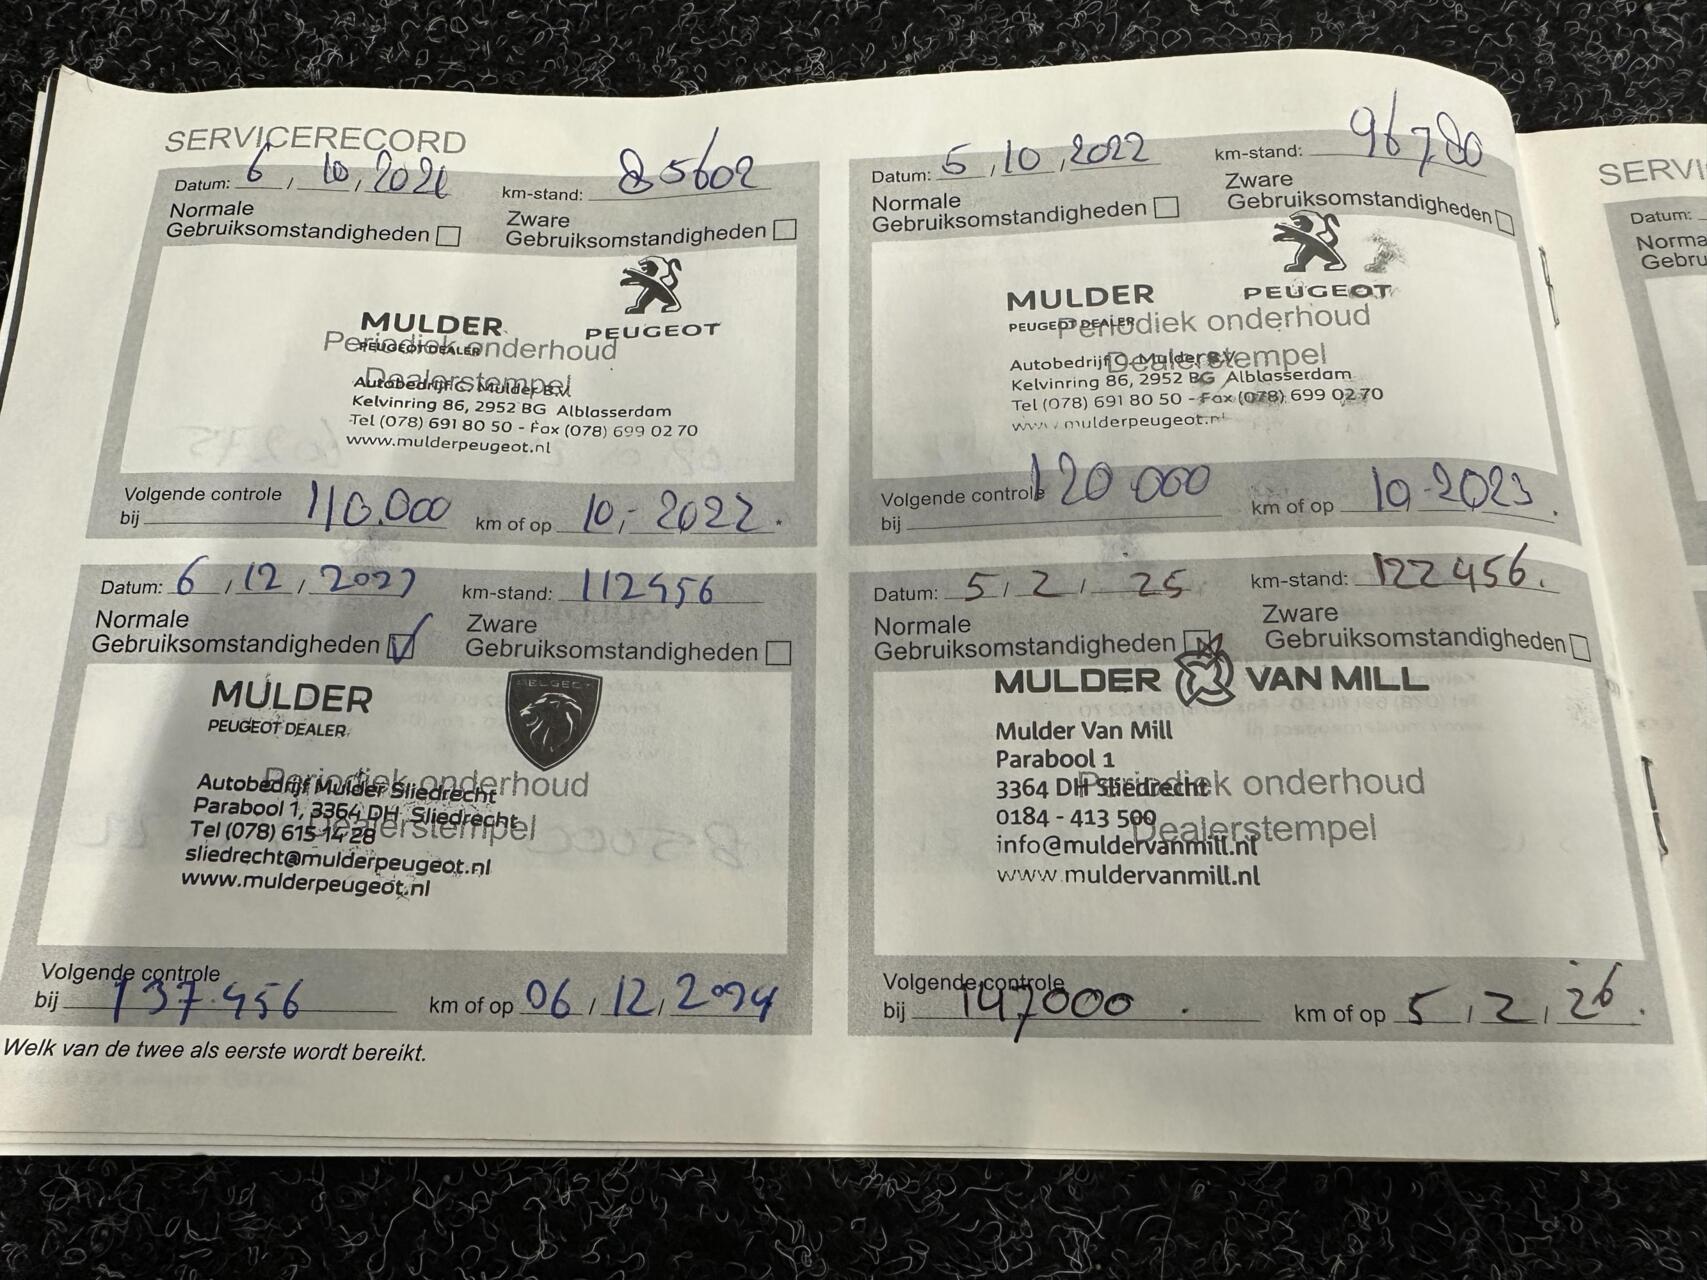 SERVICERECORD
Datum: 6 / 10 / 2021 km-stand: 85602
Normale Gebruiksomstandigheden
Zware Gebruiksomstandigheden
PEUGEOT
MULDER
PEUGEOT DEALER
Periodiek onderhoud
Dealerstempel
Autobedrijf C. Mulder B.V.
Kelvinring 86, 2952 BG Alblasserdam
Tel (078) 691 80 50 - Fax (078) 699 02 70
www.mulderpeugeot.nl
Volgende controle
bij 110.000 km of op 10 - 2022.
Datum: 5 / 10 / 2022 km-stand: 96780
Normale Gebruiksomstandigheden
Zware Gebruiksomstandigheden
PEUGEOT
MULDER
PEUGEOT DEALER
Periodiek onderhoud
Dealerstempel
Autobedrijf C. Mulder B.V.
Kelvinring 86, 2952 BG Alblasserdam
Tel (078) 691 80 50 - Fax (078) 699 02 70
www.mulderpeugeot.nl
Volgende controle
bij 120.000 km of op 10-2023.
Datum: 6 / 12 / km-stand: 112456
Normale
Gebruiksomstandigheden
Zware
Gebruiksomstandigheden
PEUGEOT
MULDER
PEUGEOT DEALER
Periodiek onderhoud
Dealerstempel
Autobedrijf Mulder Sliedrecht
Parabool 1, 3364 DH Sliedrecht
Tel (078) 615 14 28
sliedrecht@mulderpeugeot.nl
www.mulderpeugeot.nl
Volgende controle
bij 137.456 km of op 06 / 12 / 2024
Datum: 5 / 2 / 25 km-stand: 122456.
Normale
Gebruiksomstandigheden
Zware
Gebruiksomstandigheden
MULDER VAN MILL
Mulder Van Mill
Parabool 1
3364 DH Sliedrecht
Periodiek onderhoud
0184 - 413 500
Dealerstempel
info@muldervanmill.nl
www.muldervanmill.nl
Volgende controle
bij 147000 km of op 5 / 2 / 26.
Welk van de twee als eerste wordt bereikt.
SERVI
Datum:
Norma
Gebru